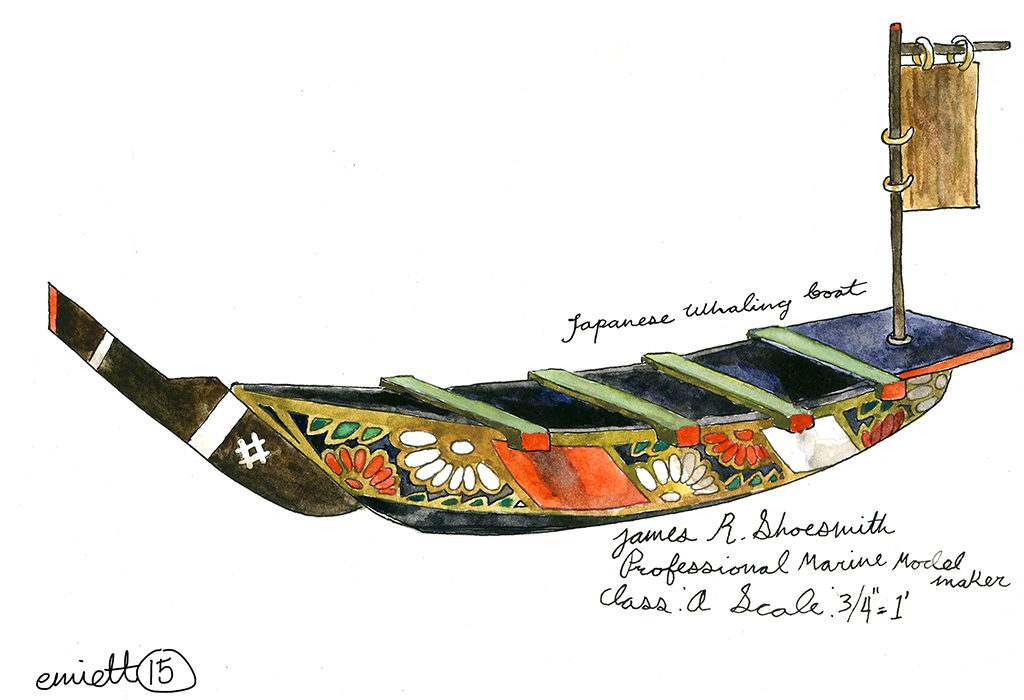 Japanese Whaling boat
James R. Shoesmith
Professional Marine Model
maker
Class: A Scale: 3/4"=1'
emiett 15